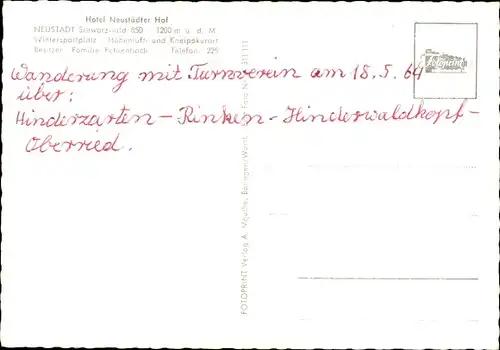 Hotel Neustädter Hof
NEUSTADT Schwarzwald 850 1200 m ü. d. M.
Wintersportplatz Höhenluft- und Kneippkurort
Besitzer Familie Telefon 225
Wanderung mit Turnverein am 18.5.64
über:
Hinderzarten - Rinken - Hinderwaldkopf -
Oberried.
FOTOPRINT Verlag A. Mauthe, Balingen/Württ. Foto Nr.
FOTOPRINT